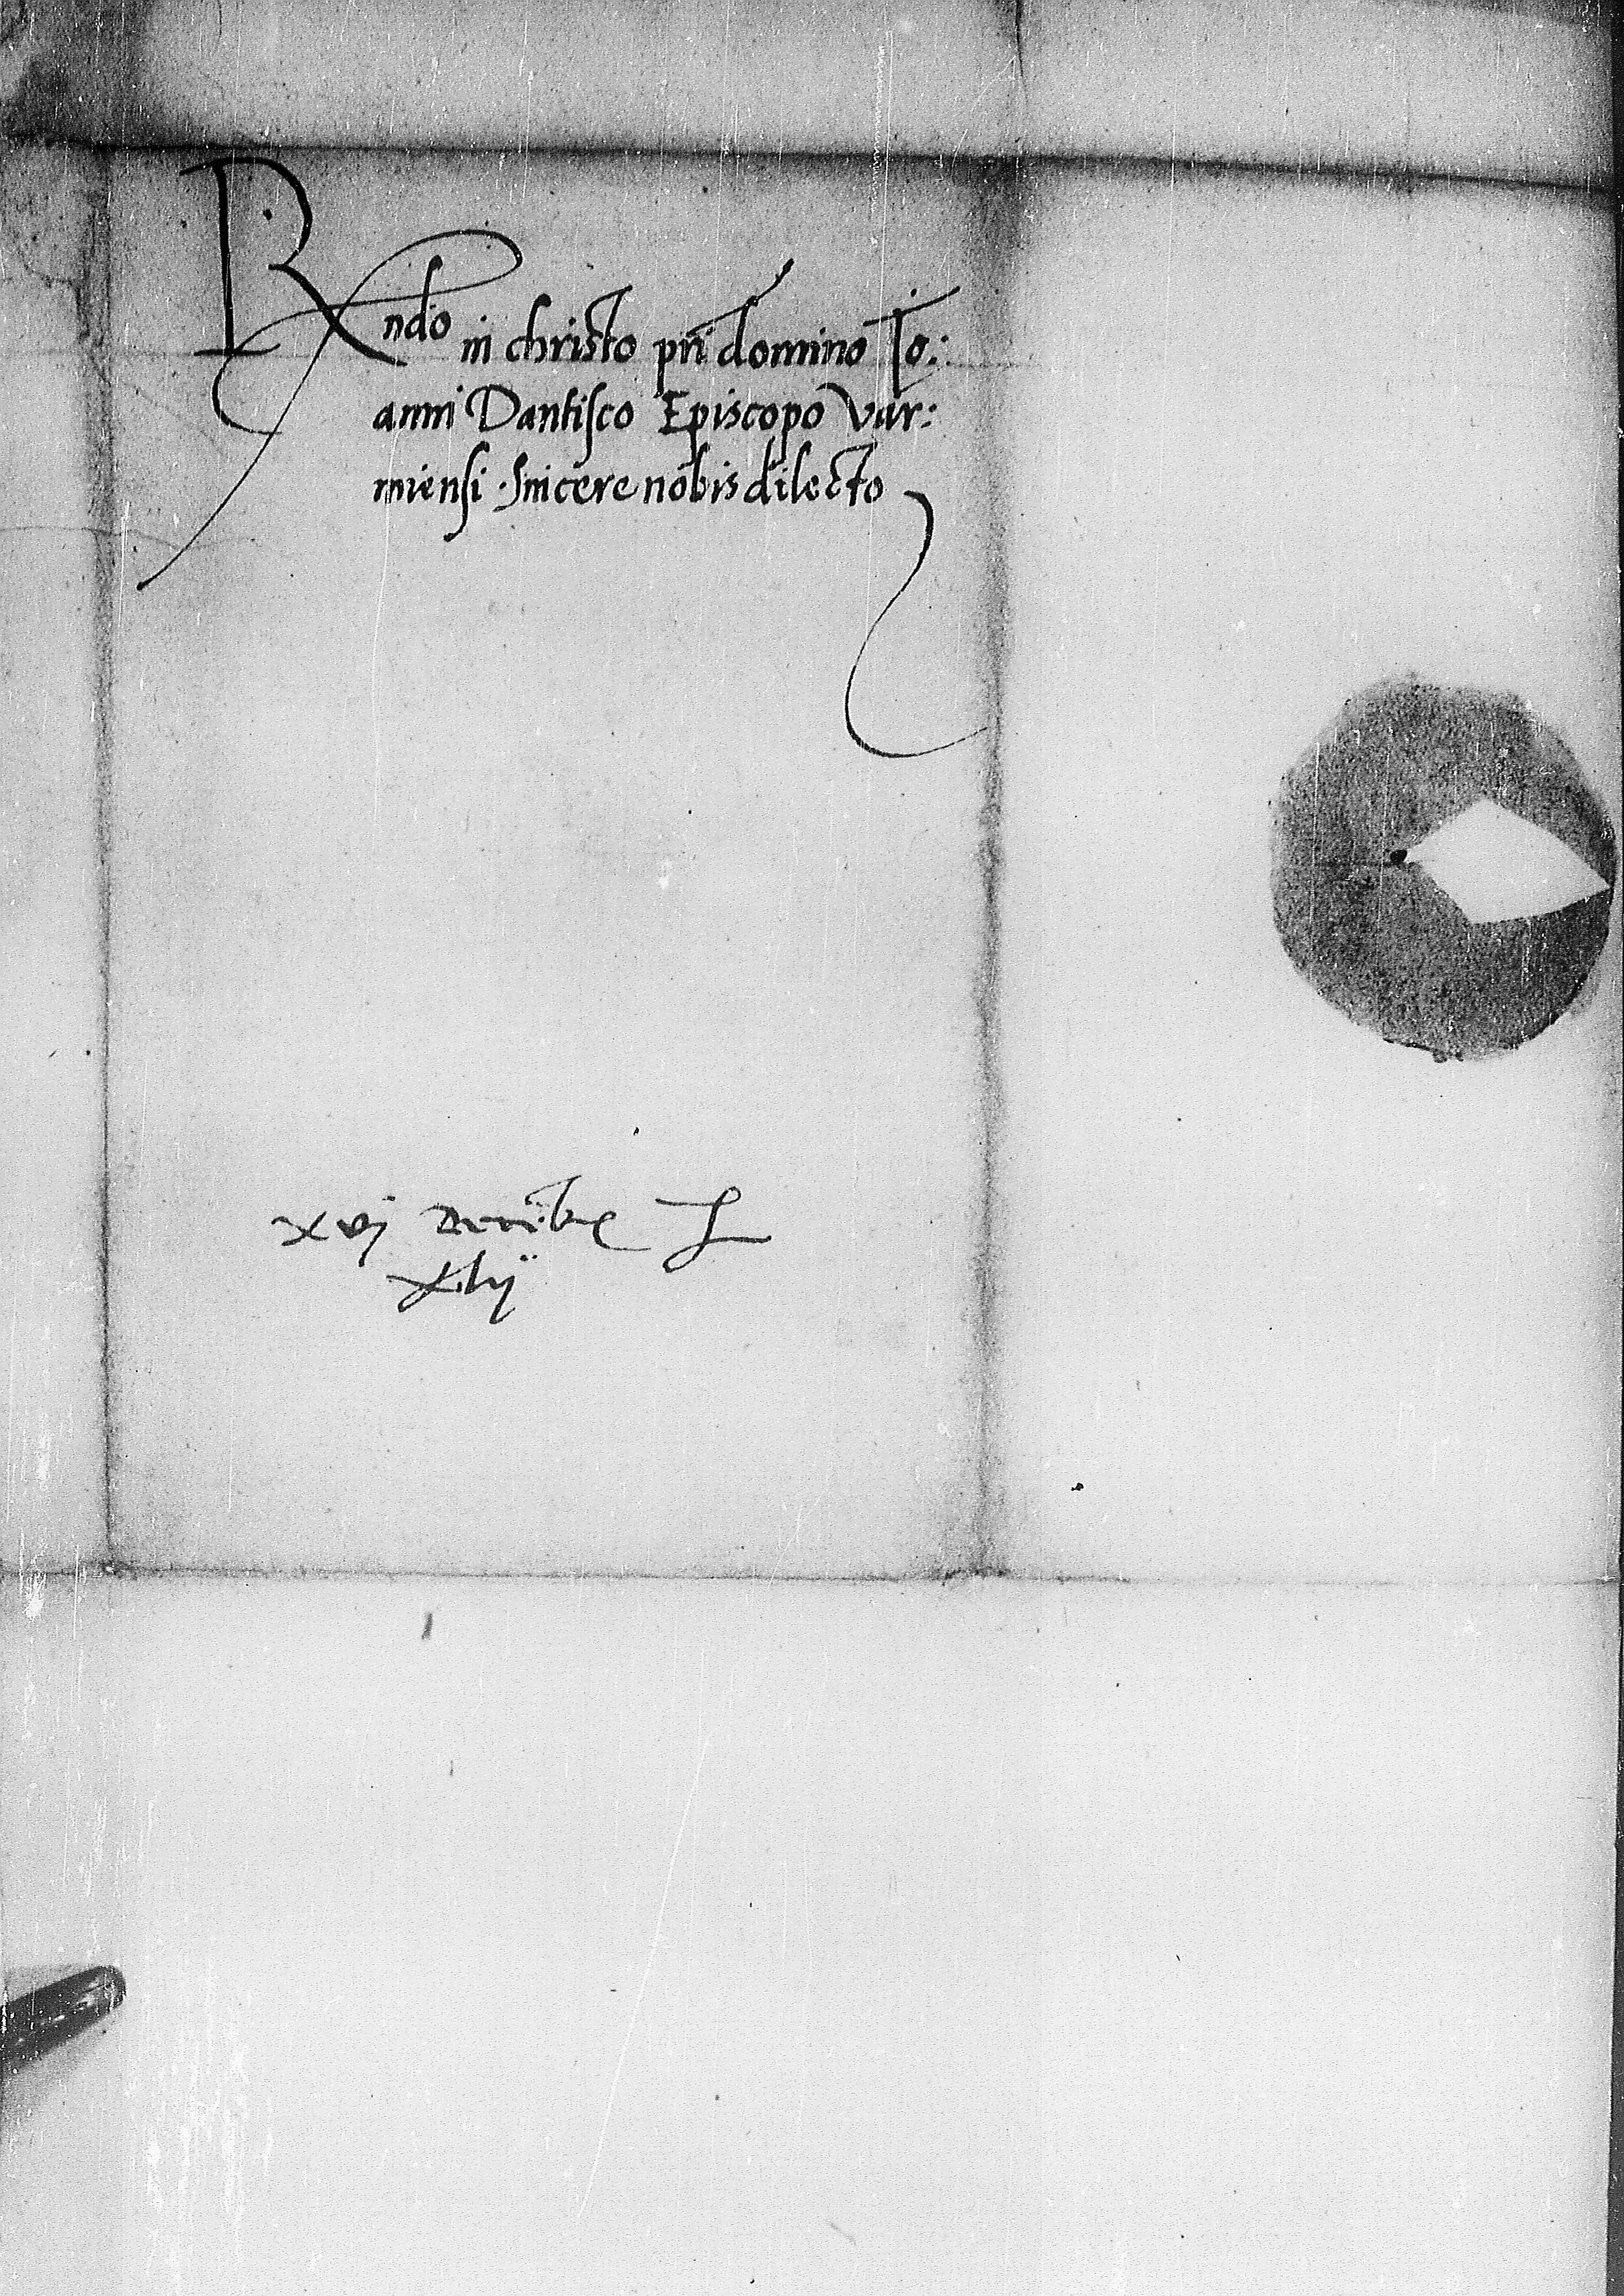 Rndo in christo pri domino Io:
anni Dantisco Episcopo Var:
miensi. Sincere nobis dilecto
xvj
xlij